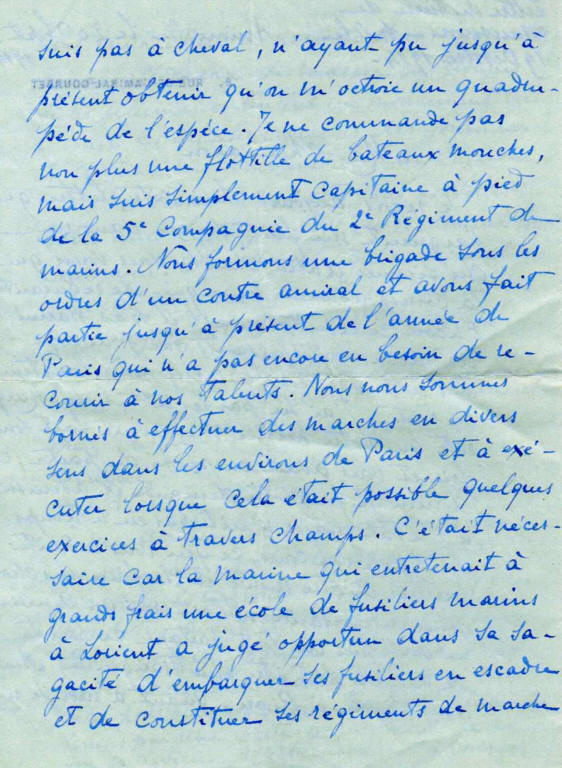 suis pas à cheval, n'ayant pu jusqu'à
présent obtenir qu'on m'octroie un quadru-
pède de l'espèce. Je ne commande pas
non plus une flottille de bateaux mouches,
mais suis simplement capitaine à pied
de la 5e Compagnie du 2e Régiment de
marins. Nous formons une brigade sous les
ordres d'un contre amiral et avons fait
partie jusqu'à présent de l'armée de
Paris qui n'a pas encore eu besoin de re-
courir à nos talents. Nous nous sommes
bornés à effectuer des marches en divers
sens dans les environs de Paris et à exé-
cuter lorsque cela était possible quelques
exercices à travers champs. C'était néces-
saire car la marine qui entretenait à
grands frais une école de fusiliers marins
à Lorient a jugé opportun dans sa sa-
gacité d'embarquer ses fusiliers en escadre
et de constituer ses régiments de marche